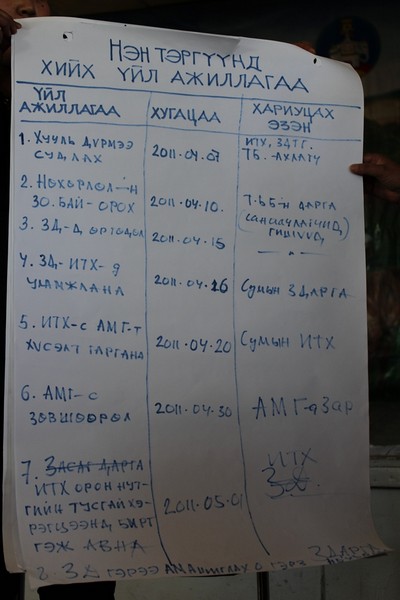 НЭН ТЭРГҮҮНД
ХИЙХ ҮЙЛ АЖИЛЛАГАА
ҮЙЛ АЖИЛЛАГАА
ХУГАЦАА
ХАРИУЦАХ ЭЗЭН
1. ХУУЛЬ ДҮРМЭЭ
СУДЛАХ
2011.04.07
ИТХ, ЗДТГ.
ТБ. АХЛАГЧ
2. НӨХӨРЛӨЛ-ИЙН
ЗО. БАЙ-ОРОХ
2011.04.10.
Т.ББ-Н ДАРГА
(САНААЧЛАГЧИД,
ГИШҮҮД)
3. ЗД-Д ӨРГӨДӨЛ
2011.04.15
—"—
4. ЗД-ИТХ-Д
УЛАМЖЛАНА
2011.04.16
Сумын З ДАРГА
5. ИТХ-С АМГ-Т
ХҮСЭЛТ ГАРГАНА
2011.04.20
Сумын ИТХ
6. АМГ-С
ЗӨВШӨӨРӨЛ
2011.04.30
АМГазар
7. ЗАСАГ ДАРГА
ИТХ ОРОН НУТ-
ГИЙН ТУСГАЙ ХЭ-
РЭГЦЭЭНД БҮРТ
ГЭЖ АВНА
2011.05.01
ИТХ
ЗД.
З ДАРГА
ЗД ГЭРЭЭ